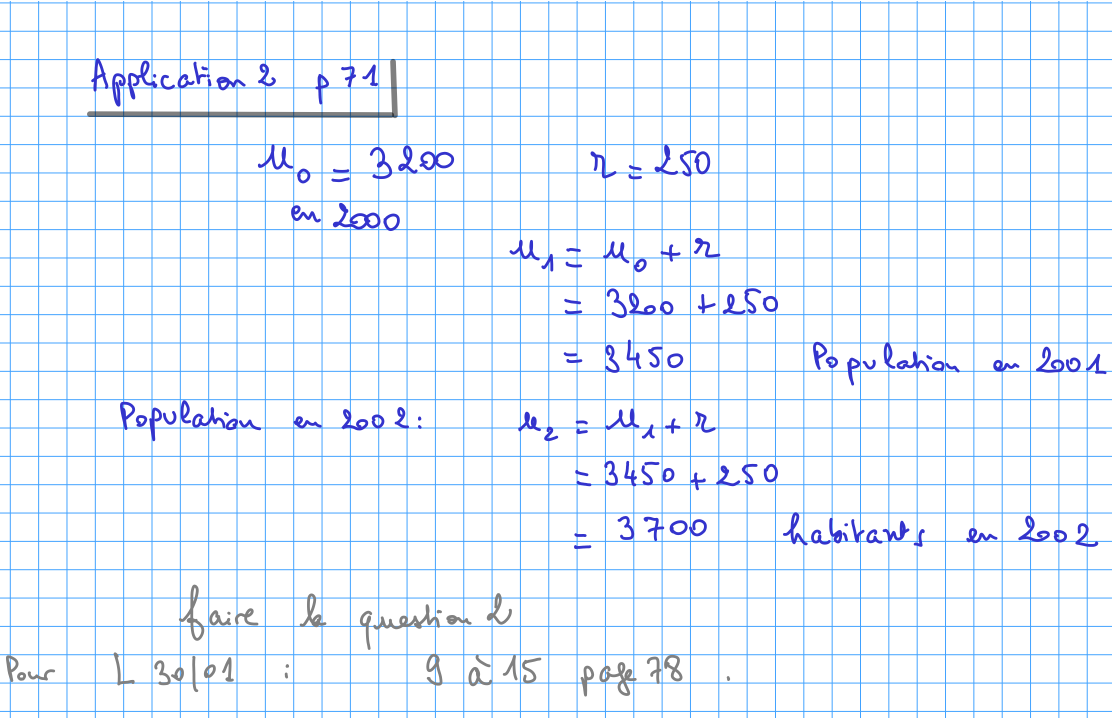 Application 2 p 71
u₀ = 3200 r = 250
en 2000
u₁ = u₀ + r
= 3200 + 250
= 3450 Population en 2001
Population en 2002 : u₂ = u₁ + r
= 3450 + 250
= 3700 habitants en 2002
faire la question 2
Pour L 30/01 : 9 à 15 page 78 .